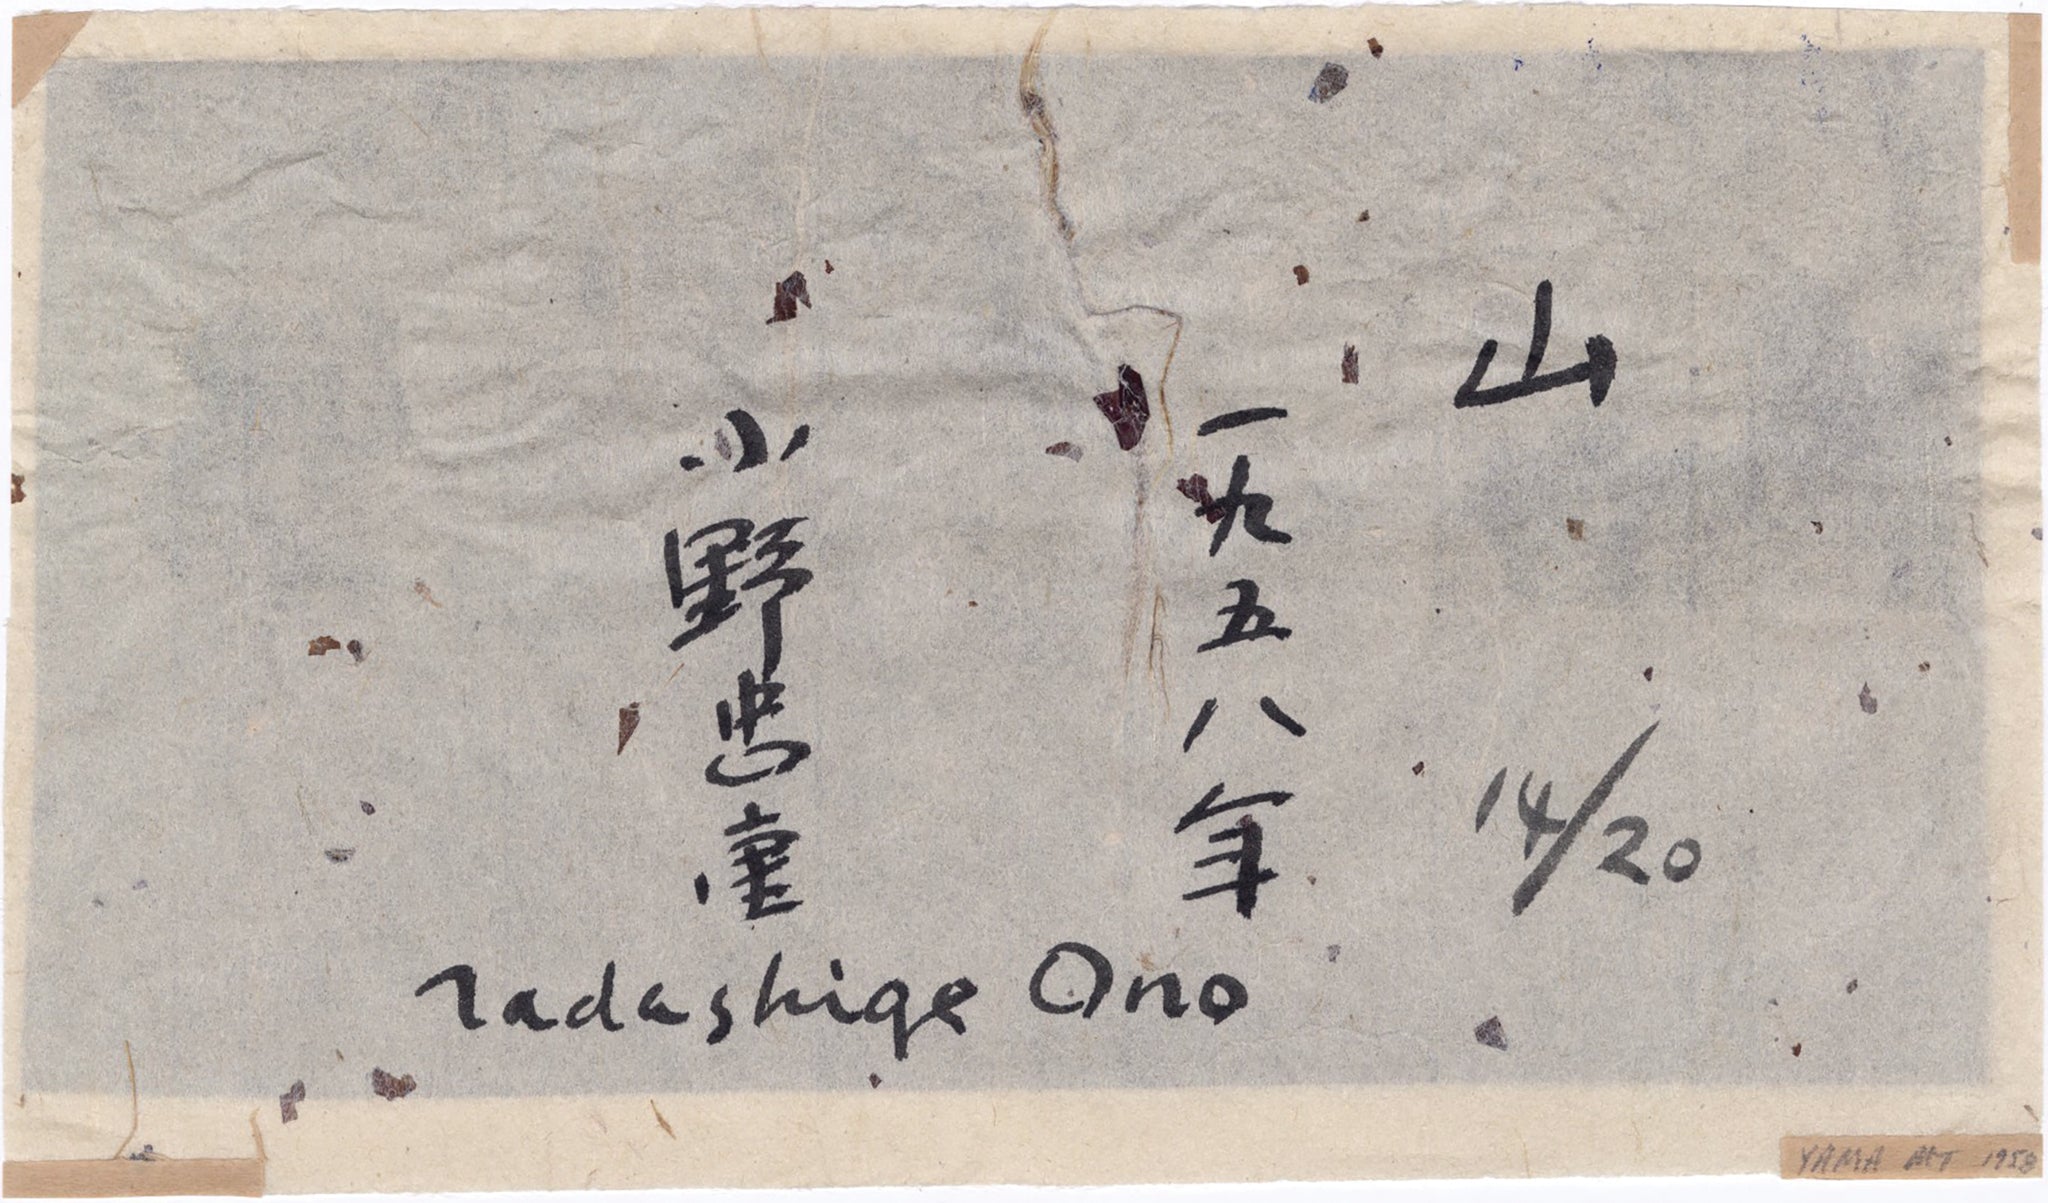 山
14/20
一九五八年
小野忠重
Tadashige Ono
YAMA MT 1958